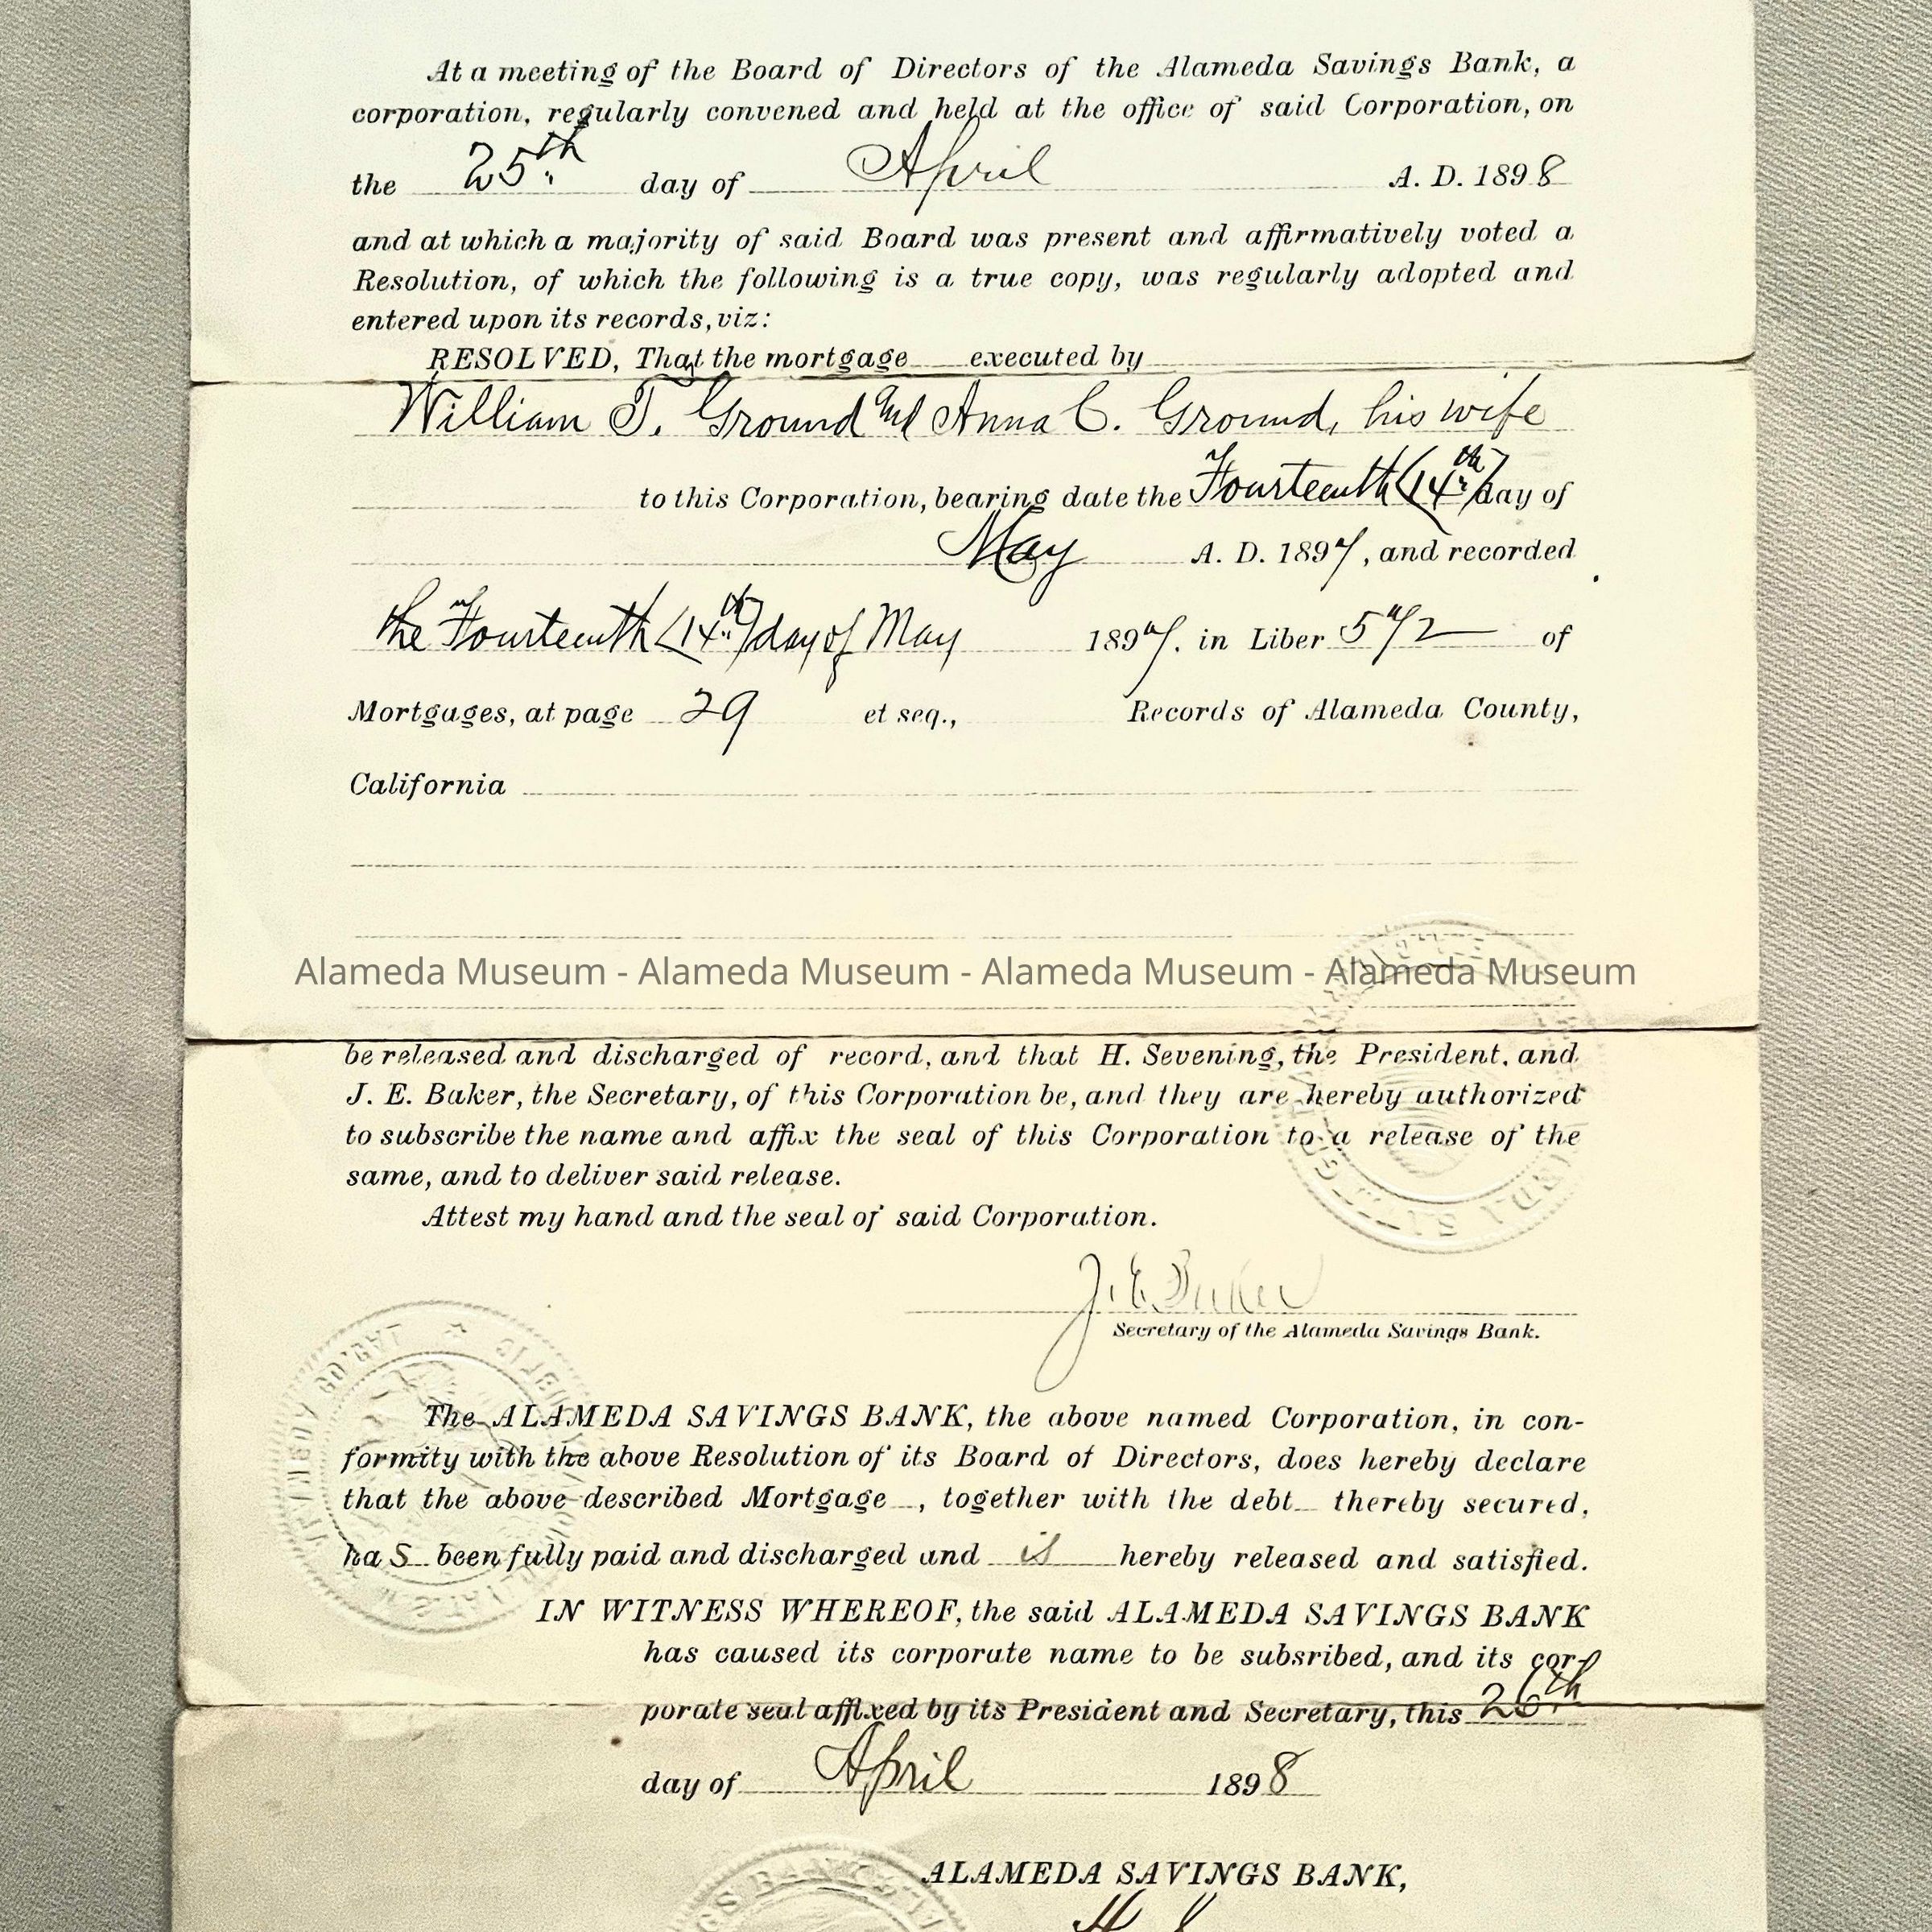 At a meeting of the Board of Directors of the Alameda Savings Bank, a
corporation, regularly convened and held at the office of said Corporation, on
the 25th day of April A. D. 1898
and at which a majority of said Board was present and affirmatively voted a
Resolution, of which the following is a true copy, was regularly adopted and
entered upon its records, viz:
RESOLVED, That the mortgage executed by
William T. Ground and Anna C. Ground, his wife
to this Corporation, bearing date the Fourteenth (14th) day of
May A. D. 1897, and recorded
the Fourteenth (14th) day of May 1897. in Liber 572 of
Mortgages, at page 29 et seq., Records of Alameda County,
California
Alameda Museum - Alameda Museum - Alameda Museum - Alameda Museum
be released and discharged of record, and that H. Sevening, the President, and
J. E. Baker, the Secretary, of this Corporation be, and they are hereby authorized
to subscribe the name and affix the seal of this Corporation to a release of the
same, and to deliver said release.
Attest my hand and the seal of said Corporation.
J. E. Baker
Secretary of the Alameda Savings Bank.
The ALAMEDA SAVINGS BANK, the above named Corporation, in con-
formity with the above Resolution of its Board of Directors, does hereby declare
that the above described Mortgage , together with the debt thereby secured,
has been fully paid and discharged and is hereby released and satisfied.
IN WITNESS WHEREOF, the said ALAMEDA SAVINGS BANK
has caused its corporate name to be subsribed, and its cor-
porate seal affixed by its President and Secretary, this 26th
day of April 1898
ALAMEDA SAVINGS BANK,